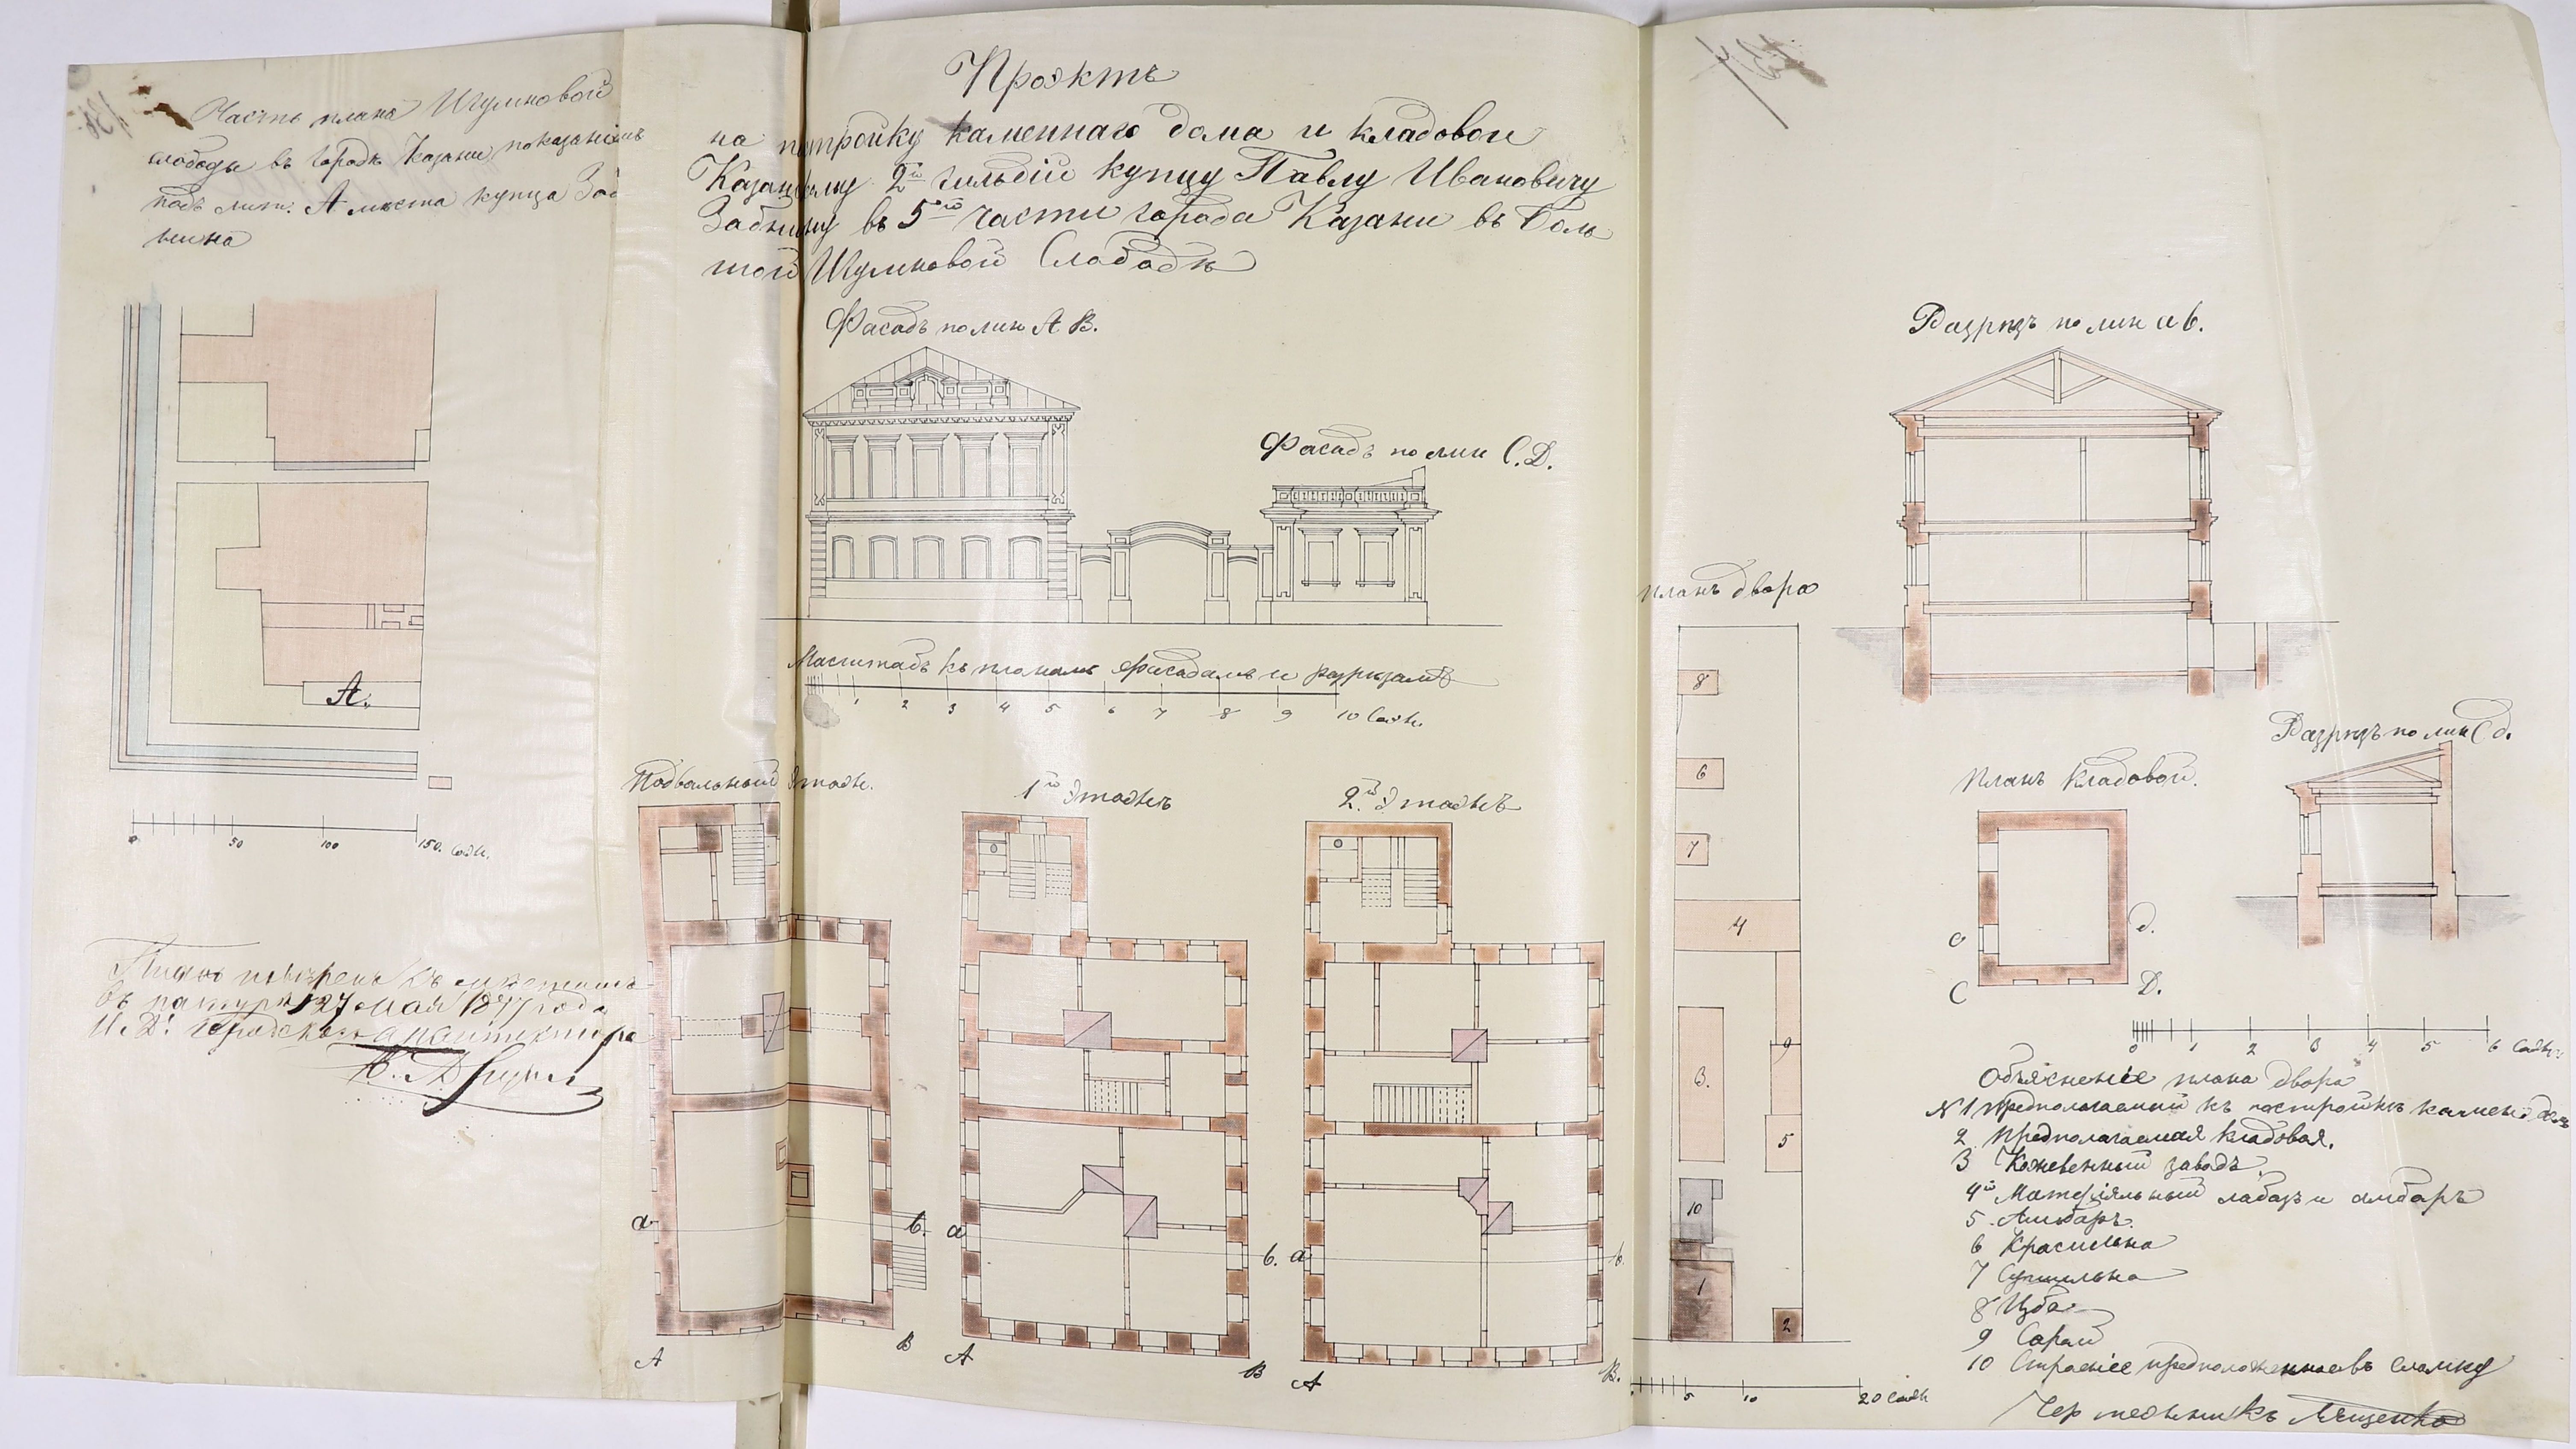 Часть плана Шумновой
слободы въ городѣ Казани показаніемъ
подъ лит. А мѣста купца Заб
нина
Проэктъ
на постройку каменнаго дома и кладовой
Казанскому 2й гильдіи купцу Павлу Ивановичу
Забнину въ 5ой части города Казани въ Боль
шой Шумновой Слободѣ
Фасадъ по лин А В.
Фасадъ по лин С. Д.
Масштабъ къ планамъ фасадамъ и разрѣзамъ
1 2 3 4 5 6 7 8 9 10 Саж.
А.
0 50 100 150. Саж.
Планъ повѣренъ съ
въ натурѣ 27 мая 18 года
И. Д. Городскаго архитектора
Подвальный этаж.
1й этажъ
2й этажъ
а в.
А В
а в.
А В
а в.
А В.
Планъ двора
8
6
7
4
3.
9
5
10
1
2
5 10 20 саж
Разрѣзъ по лин а в.
Разрѣзъ по лин С д.
Планъ Кладовой.
с д.
С Д.
0 1 2 3 4 5 6 Саж.
Объясненіе плана двора
№ 1 Предполагаемый къ постройкѣ камен. дом
2 Предполагаемая кладовая.
3 Кожевенный заводъ
4й Матеріяльный лабазъ и амбаръ
5 Амбаръ.
6 Красильна
7 Сушильна
8 Изба
9 Сарай
10 Строеніе предположенное въ сломку
Чертежникъ Мященко